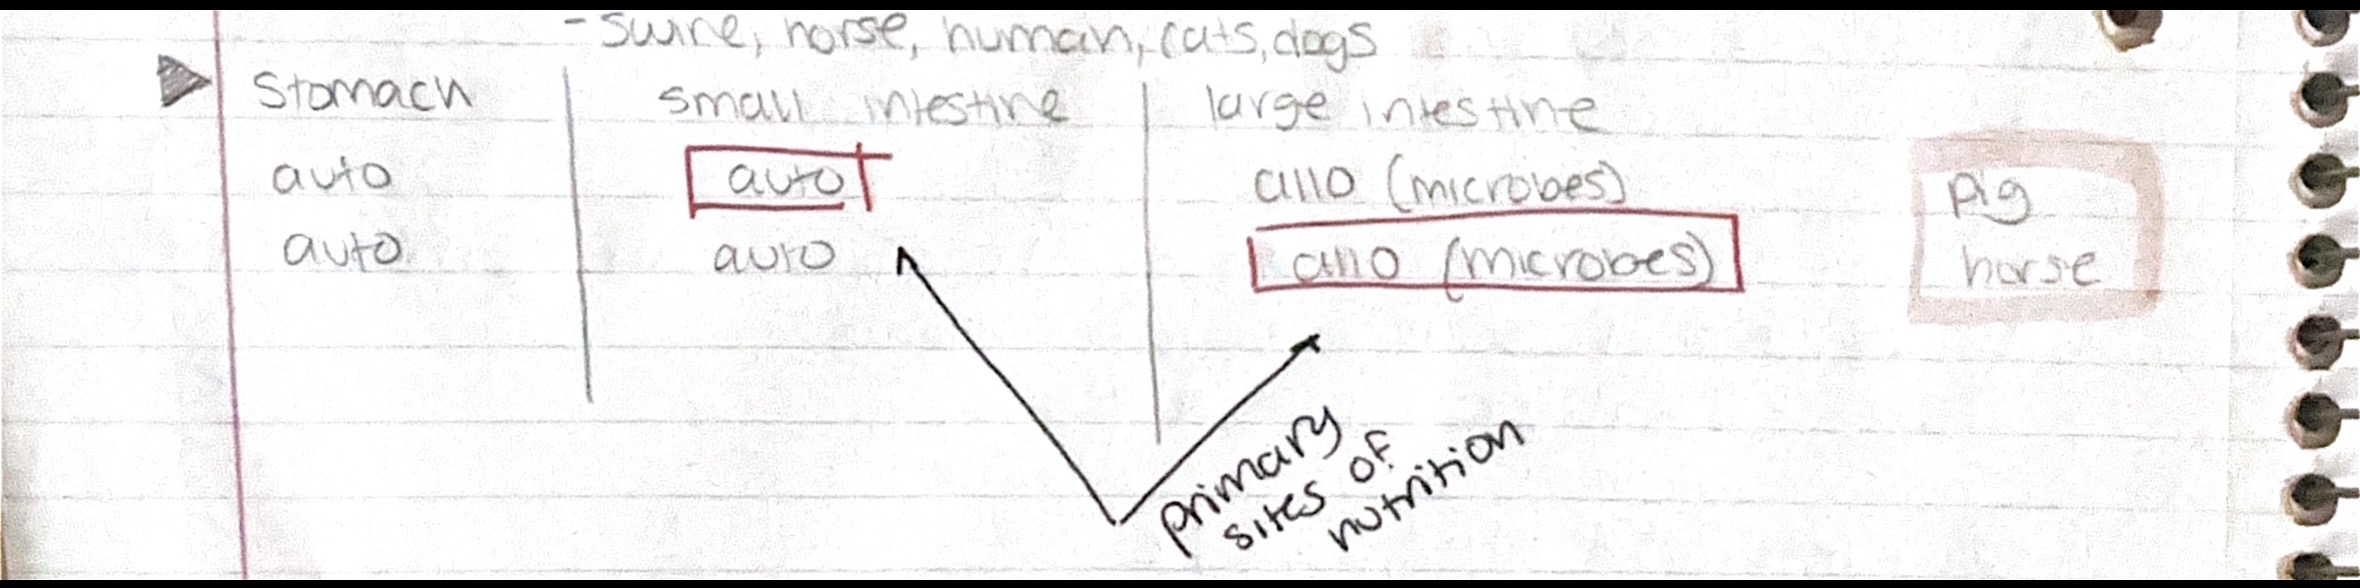 - swine, horse, human, cats, dogs
Stomach small intestine large intestine
auto auto allo (microbes) pig
auto auto allo (microbes) horse
primary
sites of
nutrition